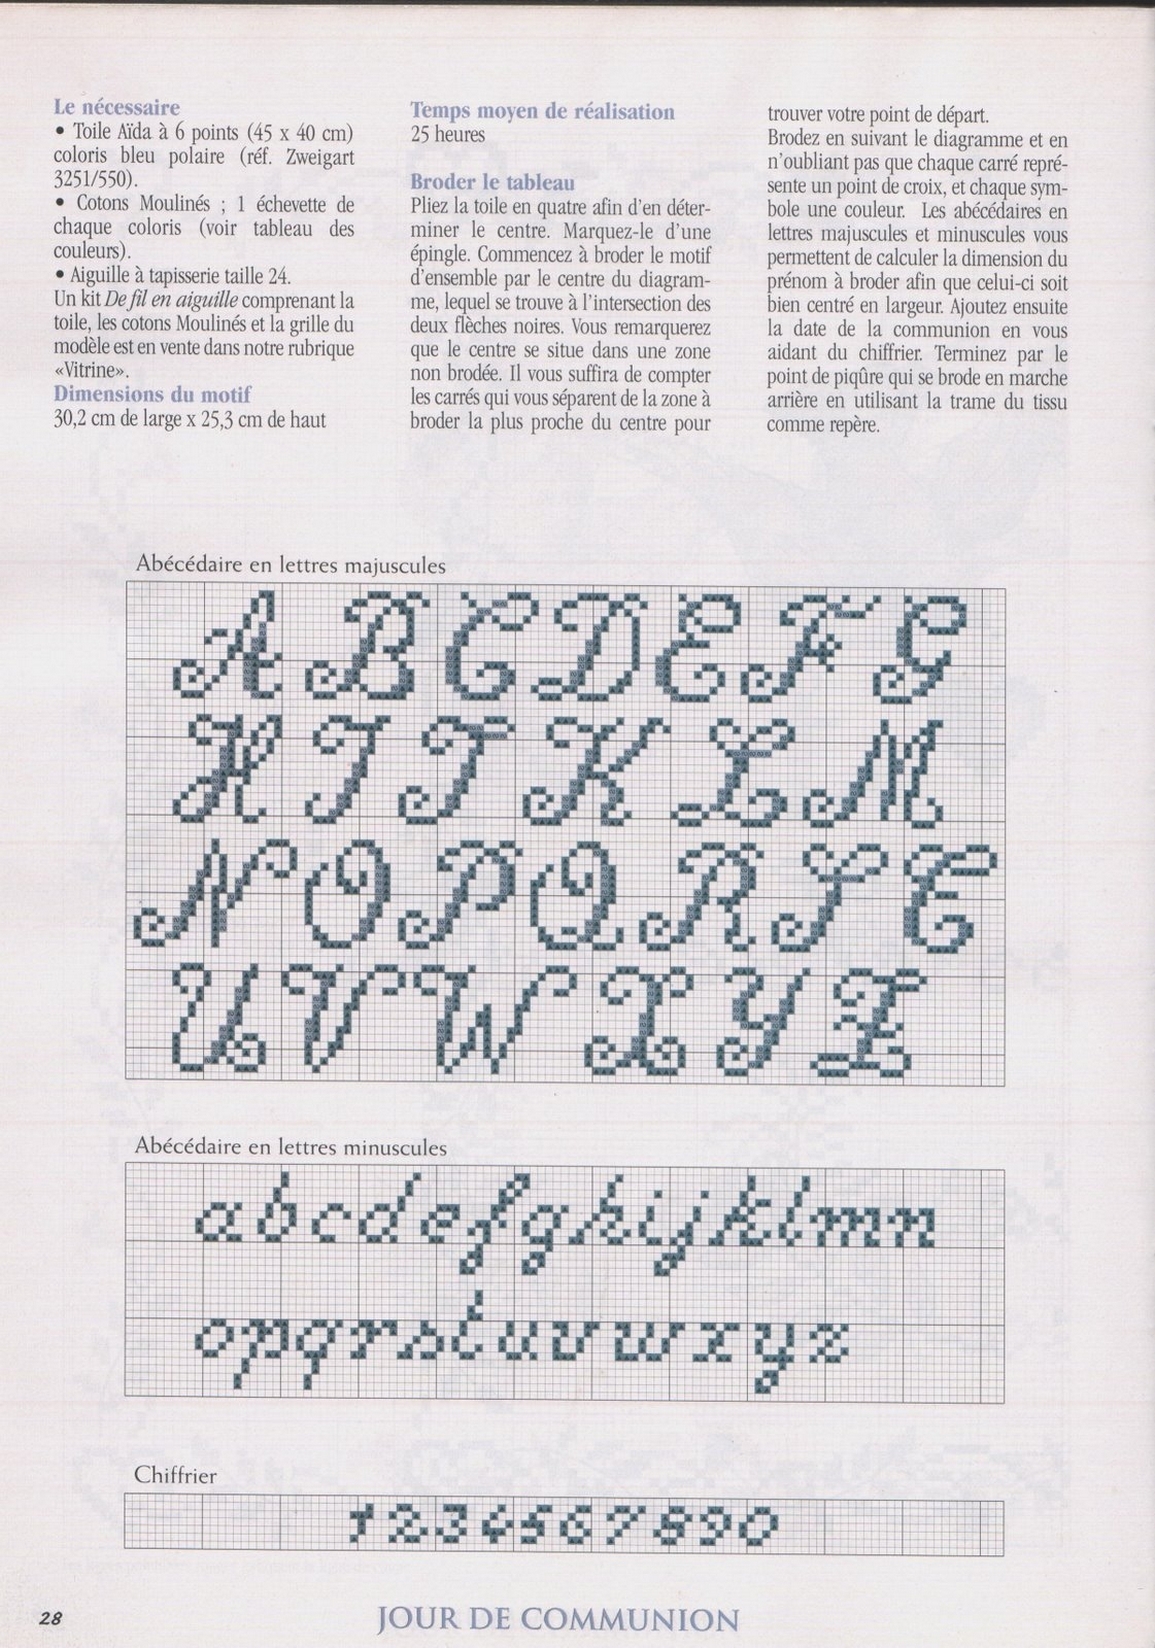 Le nécessaire
• Toile Aïda à 6 points (45 x 40 cm)
coloris bleu polaire (réf. Zweigart
3251/550).
• Cotons Moulinés ; 1 échevette de
chaque coloris (voir tableau des
couleurs).
• Aiguille à tapisserie taille 24.
Un kit De fil en aiguille comprenant la
toile, les cotons Moulinés et la grille du
modèle est en vente dans notre rubrique
«Vitrine».
Dimensions du motif
30,2 cm de large x 25,3 cm de haut
Temps moyen de réalisation
25 heures
Broder le tableau
Pliez la toile en quatre afin d'en déter-
miner le centre. Marquez-le d'une
épingle. Commencez à broder le motif
d'ensemble par le centre du diagram-
me, lequel se trouve à l'intersection des
deux flèches noires. Vous remarquerez
que le centre se situe dans une zone
non brodée. Il vous suffira de compter
les carrés qui vous séparent de la zone à
broder la plus proche du centre pour
trouver votre point de départ.
Brodez en suivant le diagramme et en
n'oubliant pas que chaque carré repré-
sente un point de croix, et chaque sym-
bole une couleur. Les abécédaires en
lettres majuscules et minuscules vous
permettent de calculer la dimension du
prénom à broder afin que celui-ci soit
bien centré en largeur. Ajoutez ensuite
la date de la communion en vous
aidant du chiffrier. Terminez par le
point de piqûre qui se brode en marche
arrière en utilisant la trame du tissu
comme repère.
Abécédaire en lettres majuscules
A B C D E F G
H I J K L M
N O P Q R S T
U V W X Y Z
Abécédaire en lettres minuscules
a b c d e f g h i j k l m n
o p q r s t u v w x y z
Chiffrier
1 2 3 4 5 6 7 8 9 0
28
JOUR DE COMMUNION